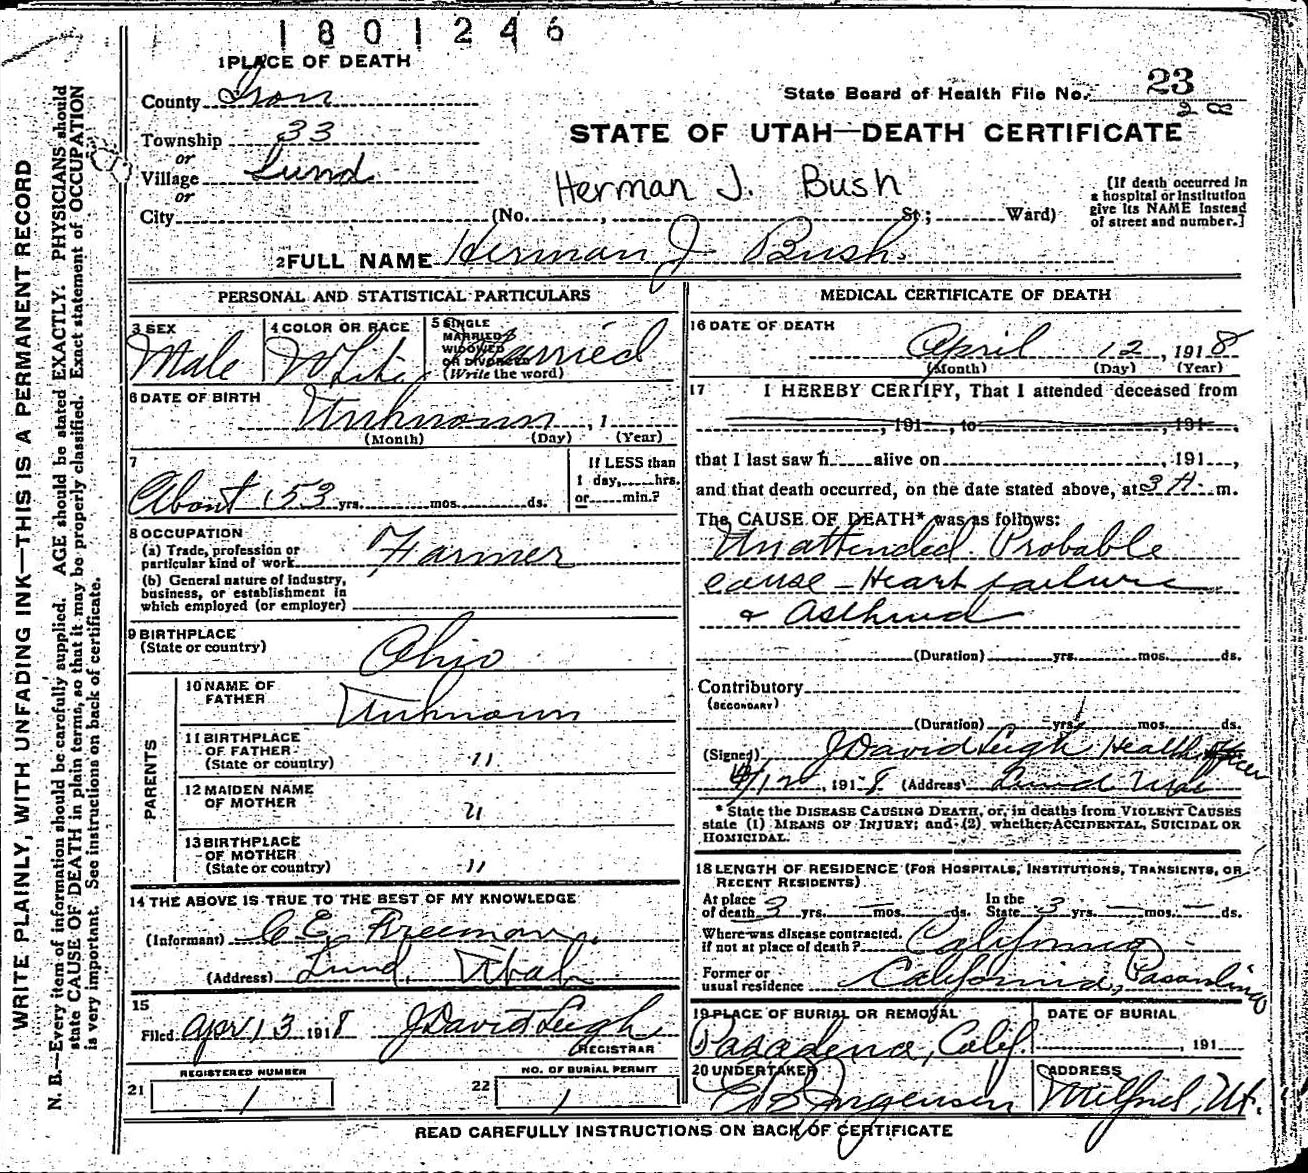 1801246
1 PLACE OF DEATH
County Iron
State Board of Health File No. 23
28
Township 33
or
Village Lund
or
City (No. , St; Ward)
STATE OF UTAH—DEATH CERTIFICATE
Herman J. Bush
[If death occurred in
a hospital or institution
give its NAME instead
of street and number.]
2 FULL NAME Herman J Bush.
PERSONAL AND STATISTICAL PARTICULARS
3 SEX
Male
4 COLOR OR RACE
White
5 SINGLE
MARRIED
WIDOWED
OR DIVORCED
(Write the word)
Married
6 DATE OF BIRTH
Unknown , 1
(Month) (Day) (Year)
7
About 53 yrs. mos. ds.
If LESS than
1 day, hrs.
or min.?
8 OCCUPATION
(a) Trade, profession or
particular kind of work Farmer
(b) General nature of industry,
business, or establishment in
which employed (or employer)
9 BIRTHPLACE
(State or country) Ohio
PARENTS
10 NAME OF
FATHER Unknown
11 BIRTHPLACE
OF FATHER
(State or country) "
12 MAIDEN NAME
OF MOTHER "
13 BIRTHPLACE
OF MOTHER
(State or country) "
14 THE ABOVE IS TRUE TO THE BEST OF MY KNOWLEDGE
(Informant) C. E. Freeman.
(Address) Lund, Utah
15
Filed Apr 13 1918 J David Leigh
REGISTRAR
21
REGISTERED NUMBER
1
22
NO. OF BURIAL PERMIT
1
MEDICAL CERTIFICATE OF DEATH
16 DATE OF DEATH
April 12, 1918
(Month) (Day) (Year)
17 I HEREBY CERTIFY, That I attended deceased from
, 191 , to , 191 ,
that I last saw h alive on , 191 ,
and that death occurred, on the date stated above, at 3 A m.
The CAUSE OF DEATH* was as follows:
Unattended. Probable
cause - Heart failure
& Asthma
(Duration) yrs. mos. ds.
Contributory
(SECONDARY)
(Duration) yrs. mos. ds.
(Signed) J David Leigh Health Officer
4/12, 1918 (Address) Lund Utah
* State the DISEASE CAUSING DEATH, or, in deaths from VIOLENT CAUSES
state (1) MEANS OF INJURY; and (2) whether ACCIDENTAL, SUICIDAL OR
HOMICIDAL.
18 LENGTH OF RESIDENCE (FOR HOSPITALS, INSTITUTIONS, TRANSIENTS, OR
RECENT RESIDENTS)
At place
of death 3 yrs. — mos. ds.
In the
State 3 yrs. — mos. — ds.
Where was disease contracted,
if not at place of death? California
Former or
usual residence California,
19 PLACE OF BURIAL OR REMOVAL
Pasadena, Calif.
DATE OF BURIAL
, 191
20 UNDERTAKER
Jorgensen
ADDRESS
Milford, Ut.
READ CAREFULLY INSTRUCTIONS ON BACK OF CERTIFICATE
WRITE PLAINLY, WITH UNFADING INK—THIS IS A PERMANENT RECORD
N. B.—Every item of information should be carefully supplied. AGE should be stated EXACTLY. PHYSICIANS should
state CAUSE OF DEATH in plain terms, so that it may be properly classified. Exact statement of OCCUPATION
is very important. See instructions on back of certificate.